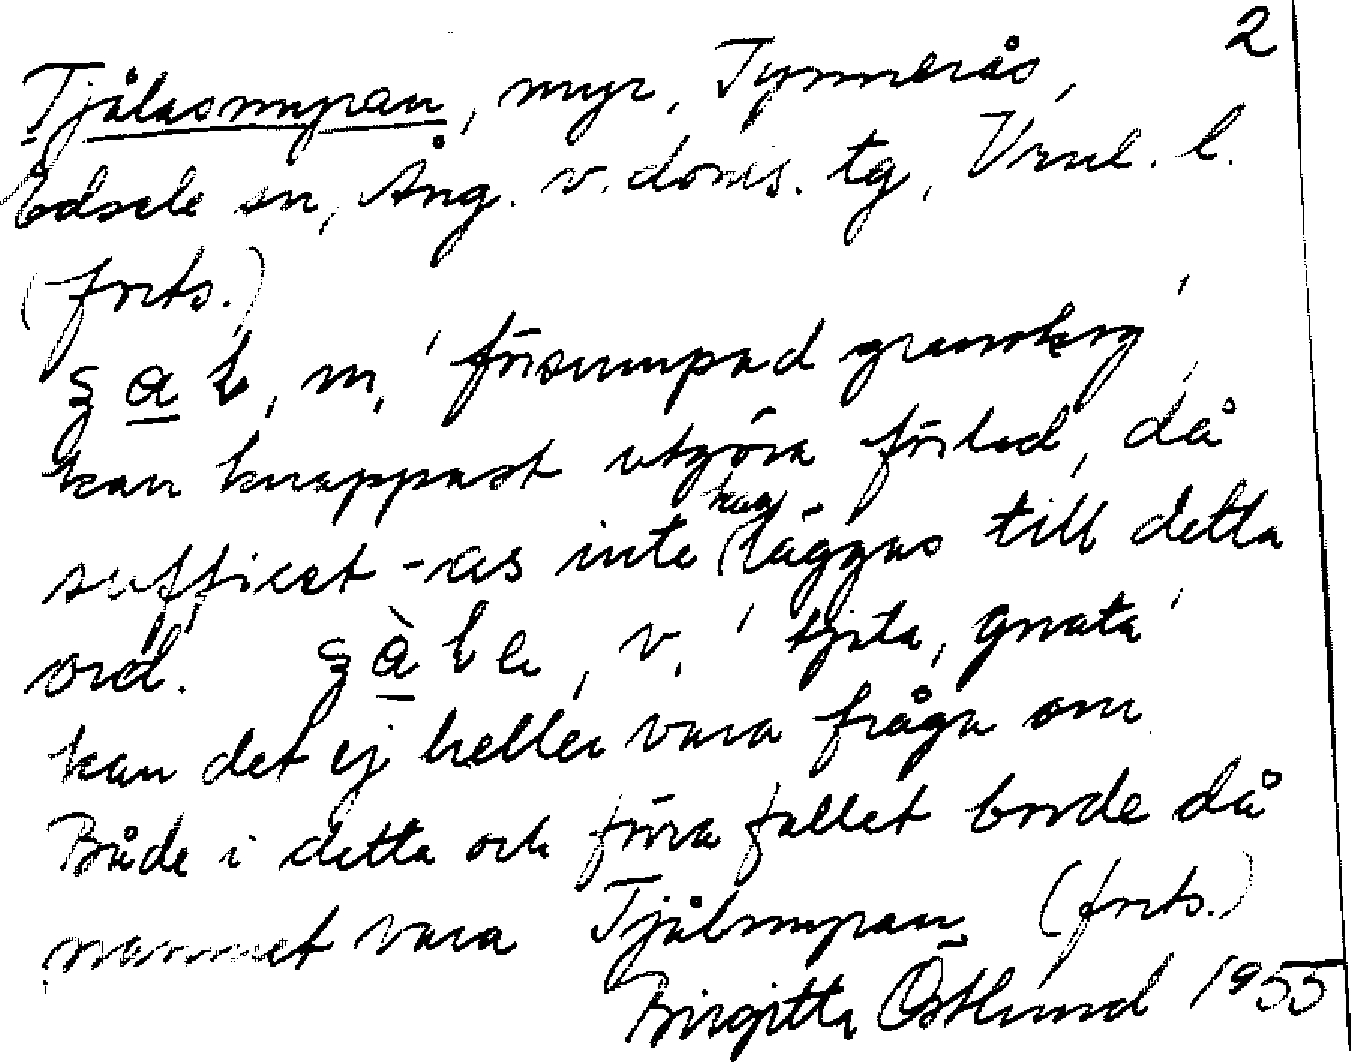 2
Tjålasmyran, myr, Tynnerås,
Edsele sn, Ång. v. doms. tg, Vnul. l.
(forts.)
ʒa̲l, m, ' försumpad granskog '
kan knappast utgöra förled, då
suffixet -as inte kan läggas till detta
ord. ʒà̲la, v. ' tjata, gnata '
kan det ej heller vara fråga om
Både i detta och förra fallet borde då
namnet vara Tjålmyran (forts.)
Birgitta Östlund 1955